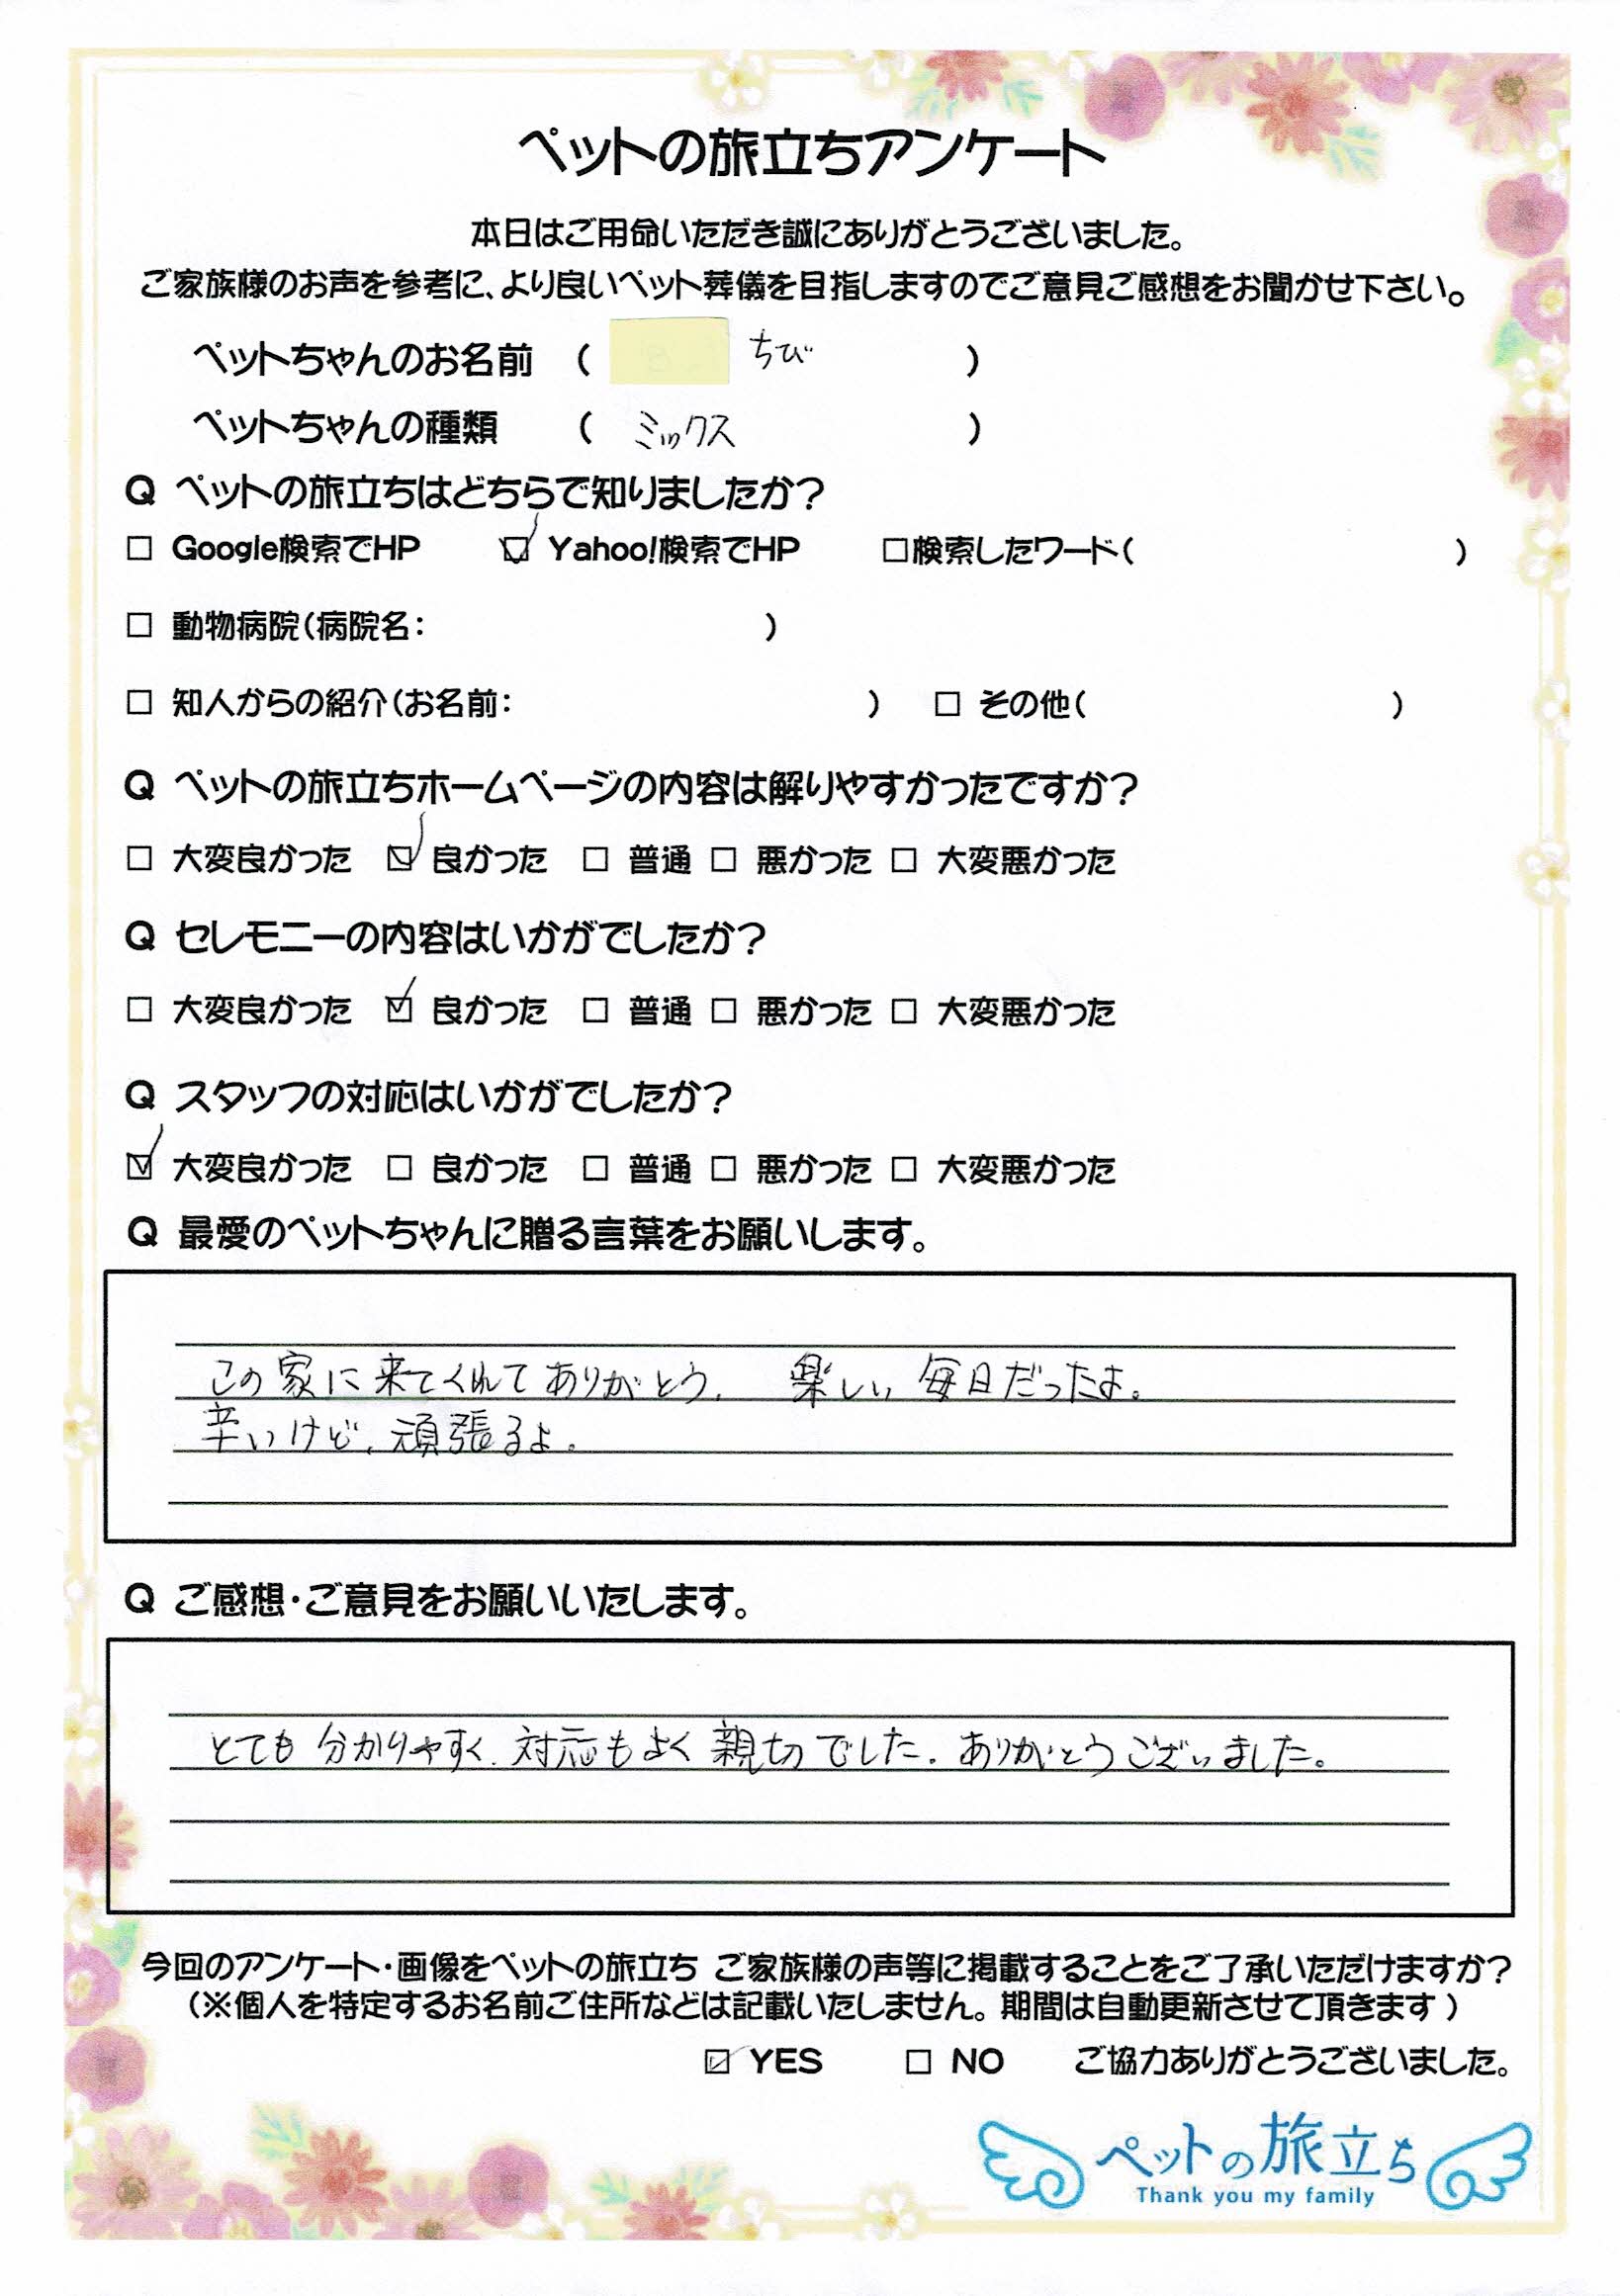 ペットの旅立ちアンケート
本日はご用命いただき誠にありがとうございました。
ご家族様のお声を参考に、より良いペット葬儀を目指しますのでご意見ご感想をお聞かせ下さい。
ペットちゃんのお名前 ( ちび )
ペットちゃんの種類 ( ミックス )
Q ペットの旅立ちはどちらで知りましたか?
□ Google検索でHP ☑ Yahoo!検索でHP □検索したワード( )
□ 動物病院(病院名: )
□ 知人からの紹介(お名前: ) □ その他( )
Q ペットの旅立ちホームページの内容は解りやすかったですか?
□ 大変良かった ☑ 良かった □ 普通 □ 悪かった □ 大変悪かった
Q セレモニーの内容はいかがでしたか?
□ 大変良かった ☑ 良かった □ 普通 □ 悪かった □ 大変悪かった
Q スタッフの対応はいかがでしたか?
☑ 大変良かった □ 良かった □ 普通 □ 悪かった □ 大変悪かった
Q 最愛のペットちゃんに贈る言葉をお願いします。
この家に来てくれてありがとう。 楽しい毎日だったよ。
辛いけど、頑張るよ。
Q ご感想・ご意見をお願いいたします。
とても分かりやすく、対応もよく親切でした。ありがとうございました。
今回のアンケート・画像をペットの旅立ち ご家族様の声等に掲載することをご了承いただけますか?
(※個人を特定するお名前ご住所などは記載いたしません。期間は自動更新させて頂きます)
☑ YES □ NO ご協力ありがとうございました。
ペットの旅立ち
Thank you my family